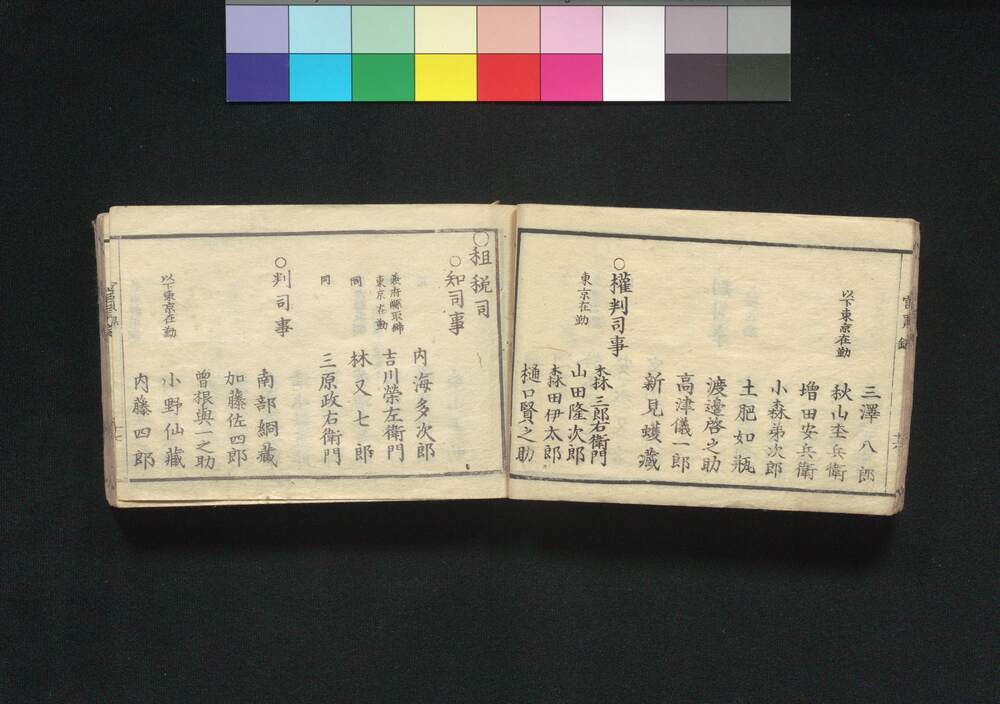 三澤八郎
以下東京在勤
秋山圭兵衛
増田安兵衛
小森弟次郎
土肥如瓶
渡邉啓之助
高津儀一郎
新見蠖藏
○權判司事
森三郎右衛門
東京在勤
山田隆次郎
森田伊太郎
樋口賢之助
○租税司
○知司事
内海多次郎
東京在勤
吉川榮左衛門
同
林又七郎
同
三原政右衛門
○判司事
南部綱藏
加藤佐四郎
曽根與一之助
以下東京在勤
小野仙藏
内藤四郎